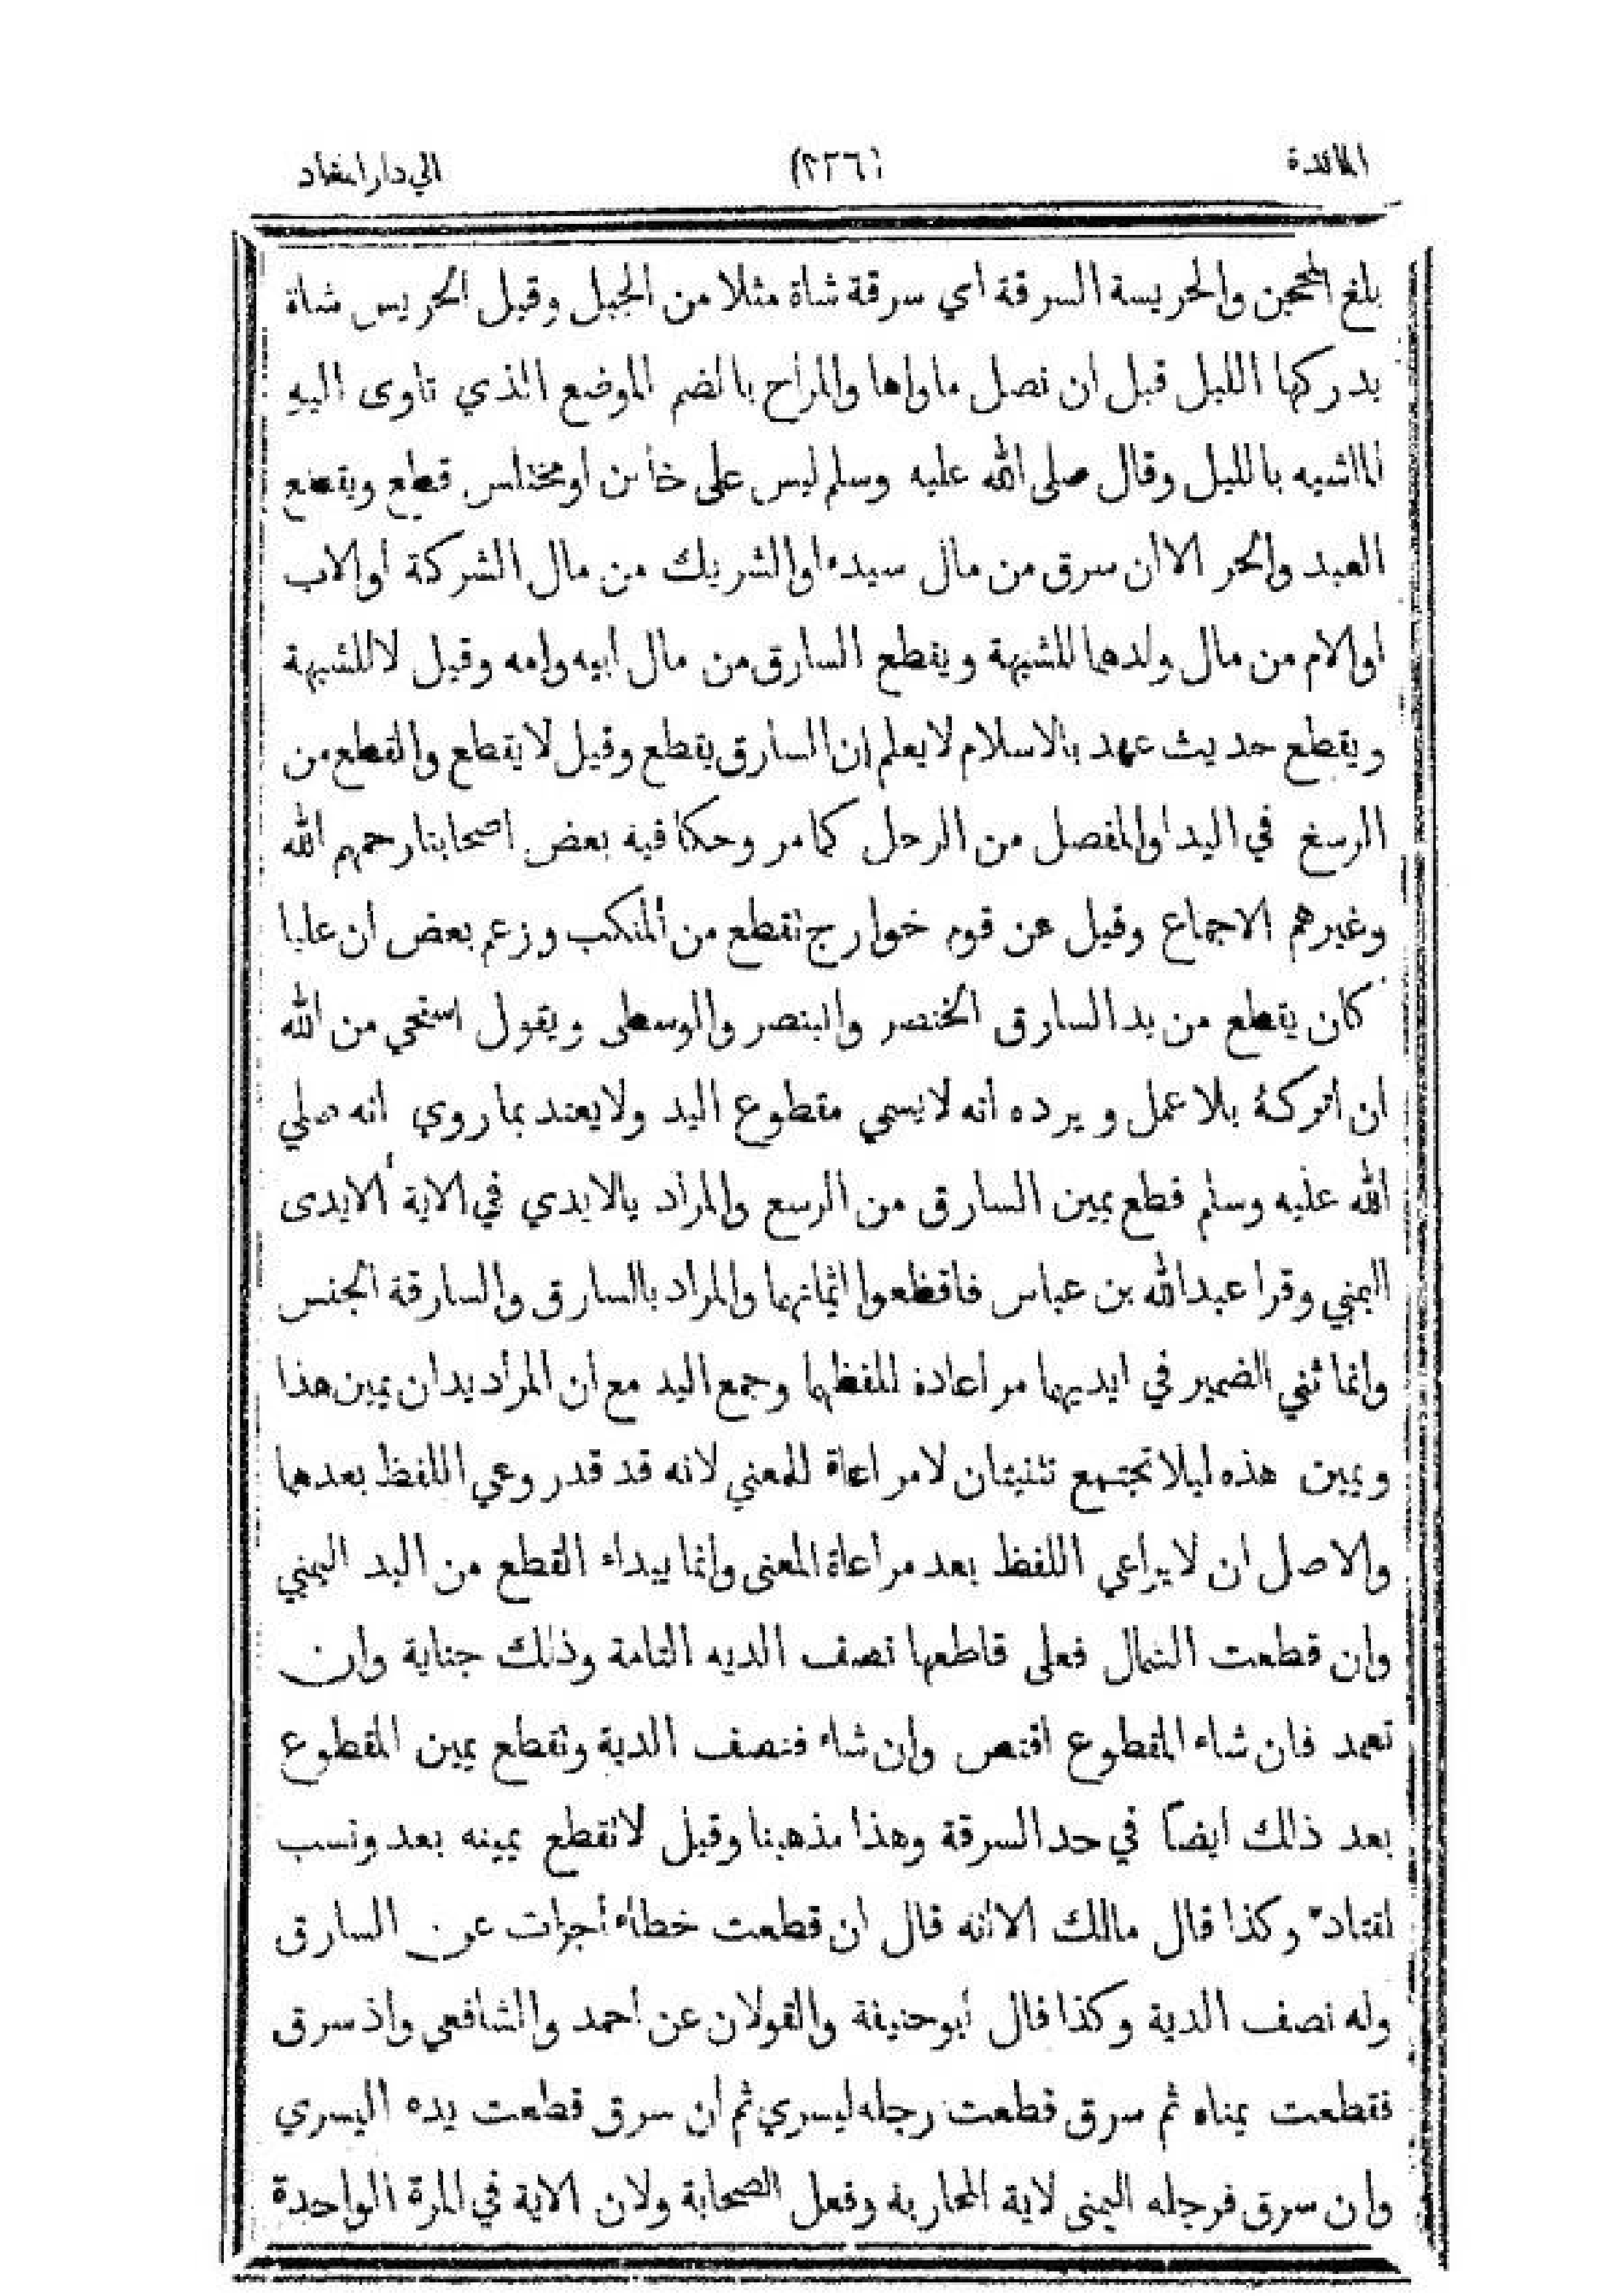 المائدة (٢٣٦) الي دار المعاد
بلغ المجن والحريسة السرقة اي سرقة شاة مثلا من الجبل وقيل الحريس شاة
يدركها الليل قبل ان تصل ماواها والمراح بالضم الموضع الذي تاوى اليه
الماشيه بالليل وقال صلى الله عليه وسلم ليس على خائن او مختلس قطع ويقطع
العبد والحر الا ان سرق من مال سيده او الشريك من مال الشركة او الاب
او الام من مال ولدهما للشبهة ويقطع السارق من مال ابيه وامه وقيل لا للشبهة
ويقطع حديث عهد بالاسلام لا يعلم ان السارق يقطع وقيل لا يقطع والقطع من
الرسغ في اليد او المفصل من الرجل كما مر وحكا فيه بعض اصحابنا رحمهم الله
وغيرهم الاجماع وقيل عن قوم خوارج تقطع من المنكب وزعم بعض ان عليا
كان يقطع من يد السارق الخنصر والبنصر والوسطى ويقول استحي من الله
ان اتركة بلا عمل ويرده انه لا يسمي مقطوع اليد ولا يعتد بما روي انه صلي
الله عليه وسلم قطع يمين السارق من الرسع والمراد بالايدي في الاية الايدى
اليمني وقرا عبدالله بن عباس فاقطعوا ايمانهما والمراد بالسارق والسارقة الجنس
وانما ثني الضمير في ايديهما مراعادة للفظهما وجمع اليد مع ان المراد يدان يمين هذا
ويمين هذه ليلا تجتمع تثنيتان لا مراعاة للمعني لانه قد قدر وعي اللفظ بعدهما
والاصل ان لا يراعي اللفظ بعد مراعاة المعنى وانما يبداء القطع من اليد اليمني
وان قطعت الشمال فعلى قاطعها نصف الديه التامة وذلك جناية وان
تعمد فان شاء المقطوع اقتص وان شاء فنصف الدية وتقطع يمين المقطوع
بعد ذالك ايضا في حد السرقة وهذا مذهبنا وقيل لا تقطع يمينه بعد ونسب
لقتادة وكذا قال مالك الا انه قال ان قطعت خطاء اجزات عن السارق
وله نصف الدية وكذا قال ابو حنيفة والقولان عن احمد والشافعي واذ سرق
فقطعت يمناه ثم سرق قطعت رجله ليسري ثم ان سرق قطعت يده اليسري
وان سرق فرجله اليمنى لاية المحاربه وفعل الصحابة ولان الاية في المرة الواحدة